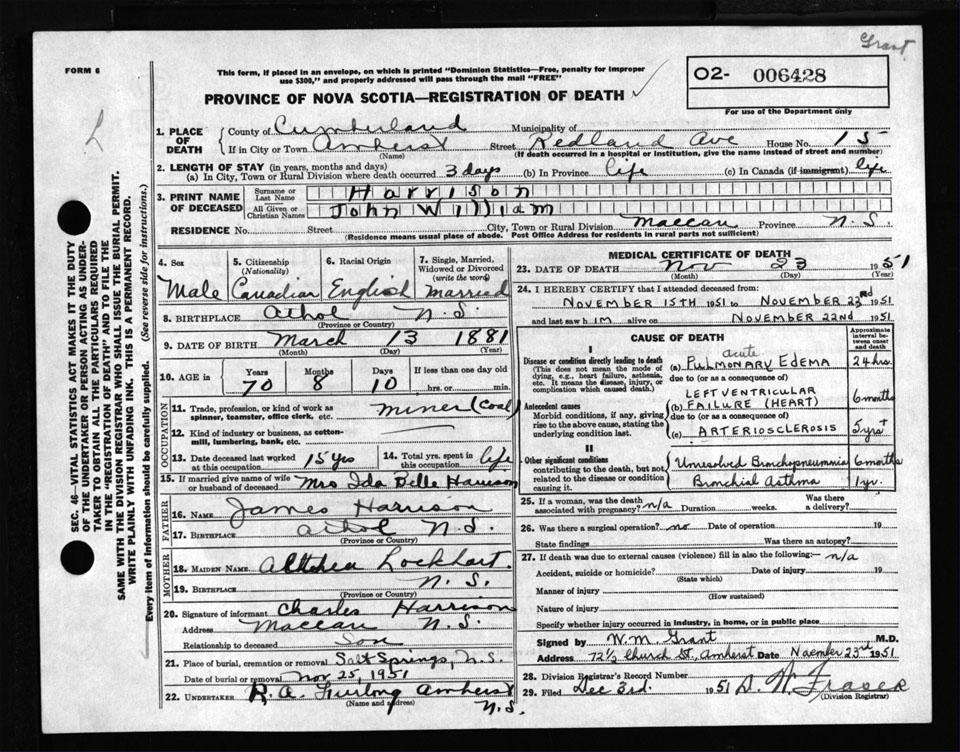 Grant
FORM 6
This form, if placed in an envelope, on which is printed "Dominion Statistics—Free, penalty for improper
use $300," and properly addressed will pass through the mail "FREE"
O2- 006428
For use of the Department only
PROVINCE OF NOVA SCOTIA—REGISTRATION OF DEATH
L
1. PLACE OF DEATH
County of Cumberland Municipality of
If in City or Town Amherst Street Redland Ave House No. 15
(Name) (If death occurred in a hospital or institution, give the name instead of street and number)
2. LENGTH OF STAY (in years, months and days)
(a) In City, Town or Rural Division where death occurred 3 days (b) In Province life (c) In Canada (if immigrant) life
3. PRINT NAME OF DECEASED
Surname or Last Name Harrison
All Given or Christian Names John William
RESIDENCE No. Street City, Town or Rural Division Maccan Province N.S.
(Residence means usual place of abode. Post Office Address for residents in rural parts not sufficient)
4. Sex Male
5. Citizenship (Nationality) Canadian
6. Racial Origin English
7. Single, Married, Widowed or Divorced (write the word) Married
8. BIRTHPLACE Athol N.S.
(Province or Country)
9. DATE OF BIRTH March 13 1881
(Month) (Day) (Year)
10. AGE in Years 70 Months 8 Days 10 If less than one day
hrs. or min.
OCCUPATION
11. Trade, profession, or kind of work as
spinner, teamster, office clerk, etc. miner (coal)
12. Kind of industry or business, as cotton-
mill, lumbering, bank, etc.
13. Date deceased last worked
at this occupation 15 yrs
14. Total yrs. spent in
this occupation life
15. If married give name of wife
or husband of deceased Mrs Ida Belle Harrison
FATHER
16. NAME James Harrison
17. BIRTHPLACE Athol N.S.
(Province or Country)
MOTHER
18. MAIDEN NAME Althea Lockhart.
19. BIRTHPLACE N.S.
(Province or Country)
20. Signature of informant Charles Harrison
Address Maccan N.S.
Relationship to deceased Son
21. Place of burial, cremation or removal Salt Springs, N.S.
Date of burial or removal Nov 25, 1951
22. UNDERTAKER R.A. Furlong Amherst
(Name and address) N.S.
MEDICAL CERTIFICATE OF DEATH
23. DATE OF DEATH Nov 23 1951
(Month) (Day) (Year)
24. I HEREBY CERTIFY that I attended deceased from:
NOVEMBER 15TH 1951 to NOVEMBER 23rd 1951
and last saw him alive on NOVEMBER 22ND 1951
CAUSE OF DEATH
Approximate interval between onset and death
I
Disease or condition directly leading to death
(This does not mean the mode of dying, e.g., heart failure, asthenia, etc. It means the disease, injury, or complication which caused death.)
(a) acute PULMONARY EDEMA 24 hrs.
due to (or as a consequence of)
Antecedent causes
Morbid conditions, if any, giving rise to the above cause, stating the underlying condition last.
(b) LEFT VENTRICULAR FAILURE (HEART) 6 months
due to (or as a consequence of)
(c) ARTERIOSCLEROSIS 5 yrs+
II
Other significant conditions
contributing to the death, but not related to the disease or condition causing it.
Unresolved Bronchopneumonia 6 months
Bronchial Asthma 1 yr.
25. If a woman, was the death
associated with pregnancy? n/a Duration weeks. Was there a delivery?
26. Was there a surgical operation? no Date of operation 19
State findings Was there an autopsy?
27. If death was due to external causes (violence) fill in also the following:— n/a
Accident, suicide or homicide? Date of injury 19
(State which)
Manner of injury
(How sustained)
Nature of injury
Specify whether injury occurred in industry, in home, or in public place
Signed by W.M. Grant M.D.
Address 72 1/2 Church St, Amherst Date November 23rd 1951
28. Division Registrar's Record Number
29. Filed Dec 3rd. 1951 D. W. Fraser
(Division Registrar)
SEC. 46—VITAL STATISTICS ACT MAKES IT THE DUTY
OF THE UNDERTAKER OR PERSON ACTING AS UNDER-
TAKER TO OBTAIN ALL THE PARTICULARS REQUIRED
IN THE "REGISTRATION OF DEATH" AND TO FILE THE
SAME WITH THE DIVISION REGISTRAR WHO SHALL ISSUE THE BURIAL PERMIT.
WRITE PLAINLY WITH UNFADING INK. THIS IS A PERMANENT RECORD.
Every item of Information should be carefully supplied. (See reverse side for instructions.)